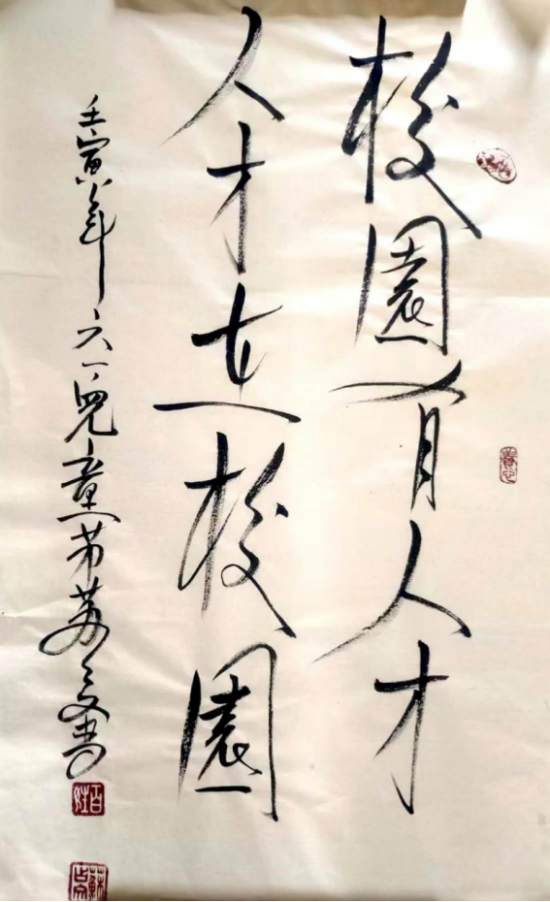 校園有人才
人才在校園
壬寅年六一兒童节苏文書